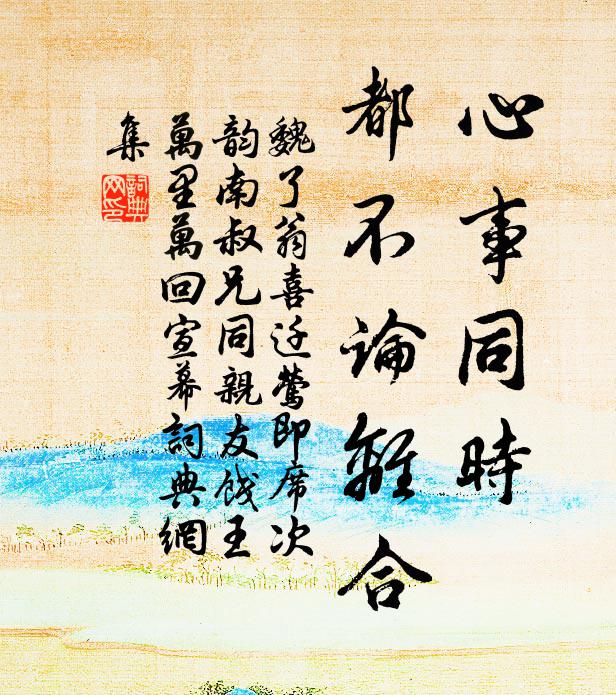 心事同時
都不論離合
魏了翁喜迁鶯即席次
韵南叔兄同親友餞王
萬里萬回宣幕詞典網
集
詞典
网印